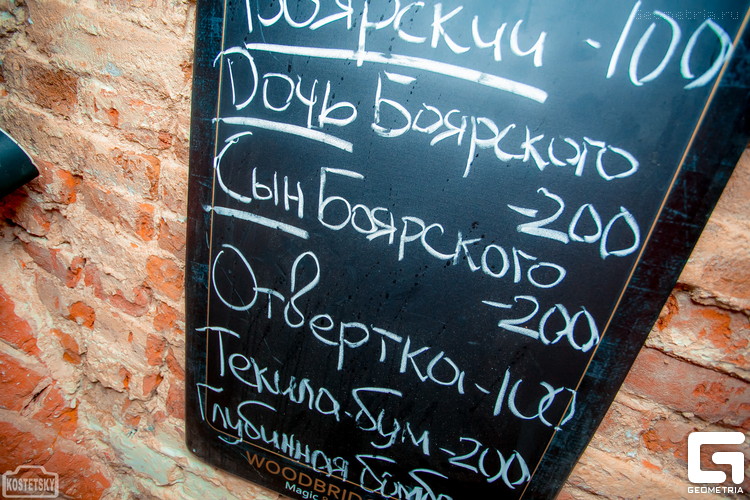 geometria.ru
Боярский -100
Дочь Боярского
-200
Сын Боярского
-200
Отвертка -100
Текила-бум -200
Глубинная бомба
WOODBRID
Magic
KOSTETSKY
GEOMETRIA